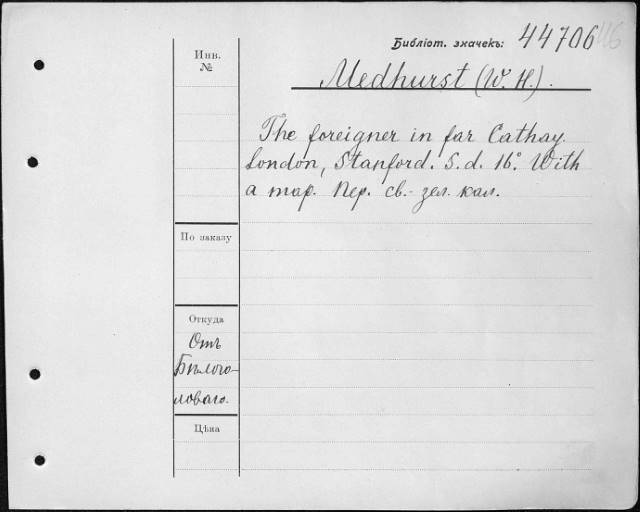 Библіот. значекъ: 44706
Инв.
№
Medhurst (W. H.).
The foreigner in far Cathay.
London, Stanford. S. d. 16°. With
a map. Пер. св.-зел. кал.
По заказу
Откуда
Отъ
Бѣлого-
ловаго.
Цѣна